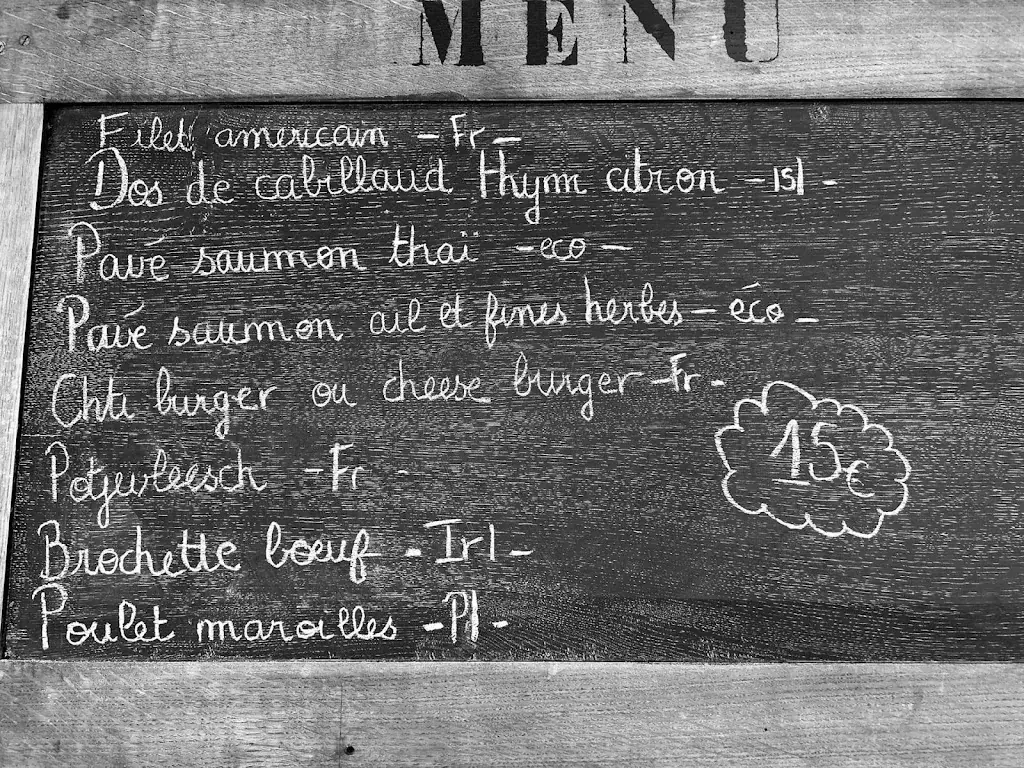 MENU
Filet americain - Fr -
Dos de cabillaud thym citron - isl -
Pavé saumon thaï - eco -
Pavé saumon ail et fines herbes - éco -
Chti burger ou cheese burger - Fr -
Potjevleesch - Fr -
15€
Brochette bœuf - Irl -
Poulet maroilles - Pl -